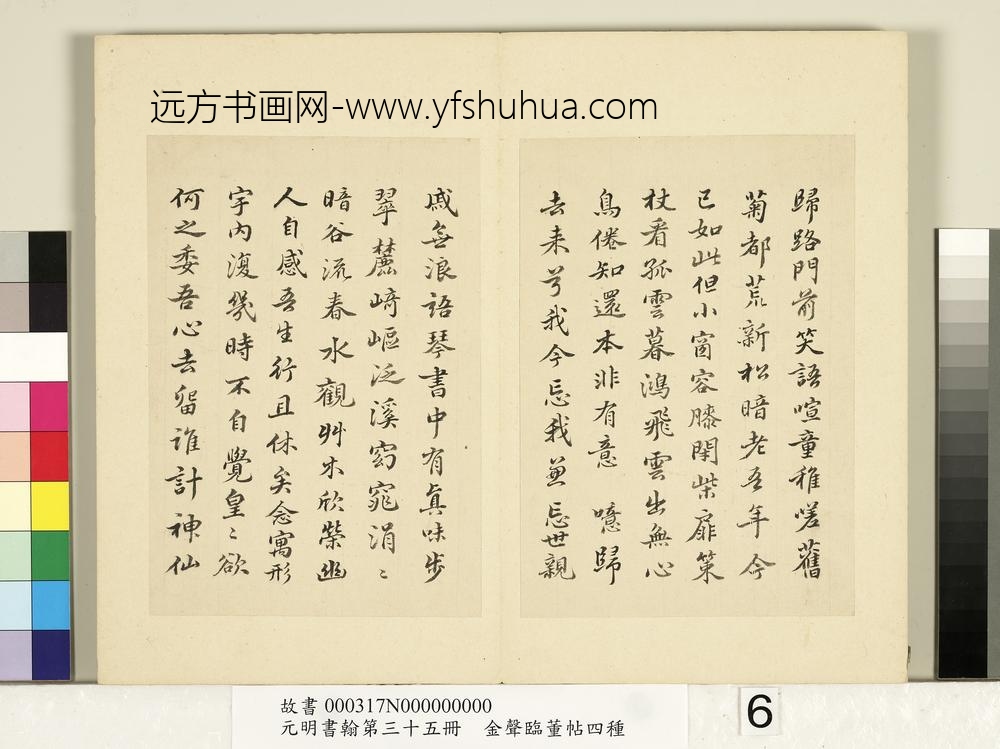 远方书画网-www.yfshuhua.com
歸路門前笑語喧童稚嗟舊
菊都荒新松暗老吾年今
已如此但小窗容膝閉柴扉策
杖看孤雲暮鴻飛雲出無心
鳥倦知還本非有意 噫歸
去来兮我今忘我兼忘世親
戚無浪語琴書中有真味步
翠麓崎嶇泛溪窈窕涓〻
暗谷流春水觀艸木欣榮幽
人自感吾生行且休矣念寓形
宇內復幾時不自覺皇〻欲
何之委吾心去留誰計神仙
故書 000317N000000000
元明書翰第三十五冊 金聲臨董帖四種
6